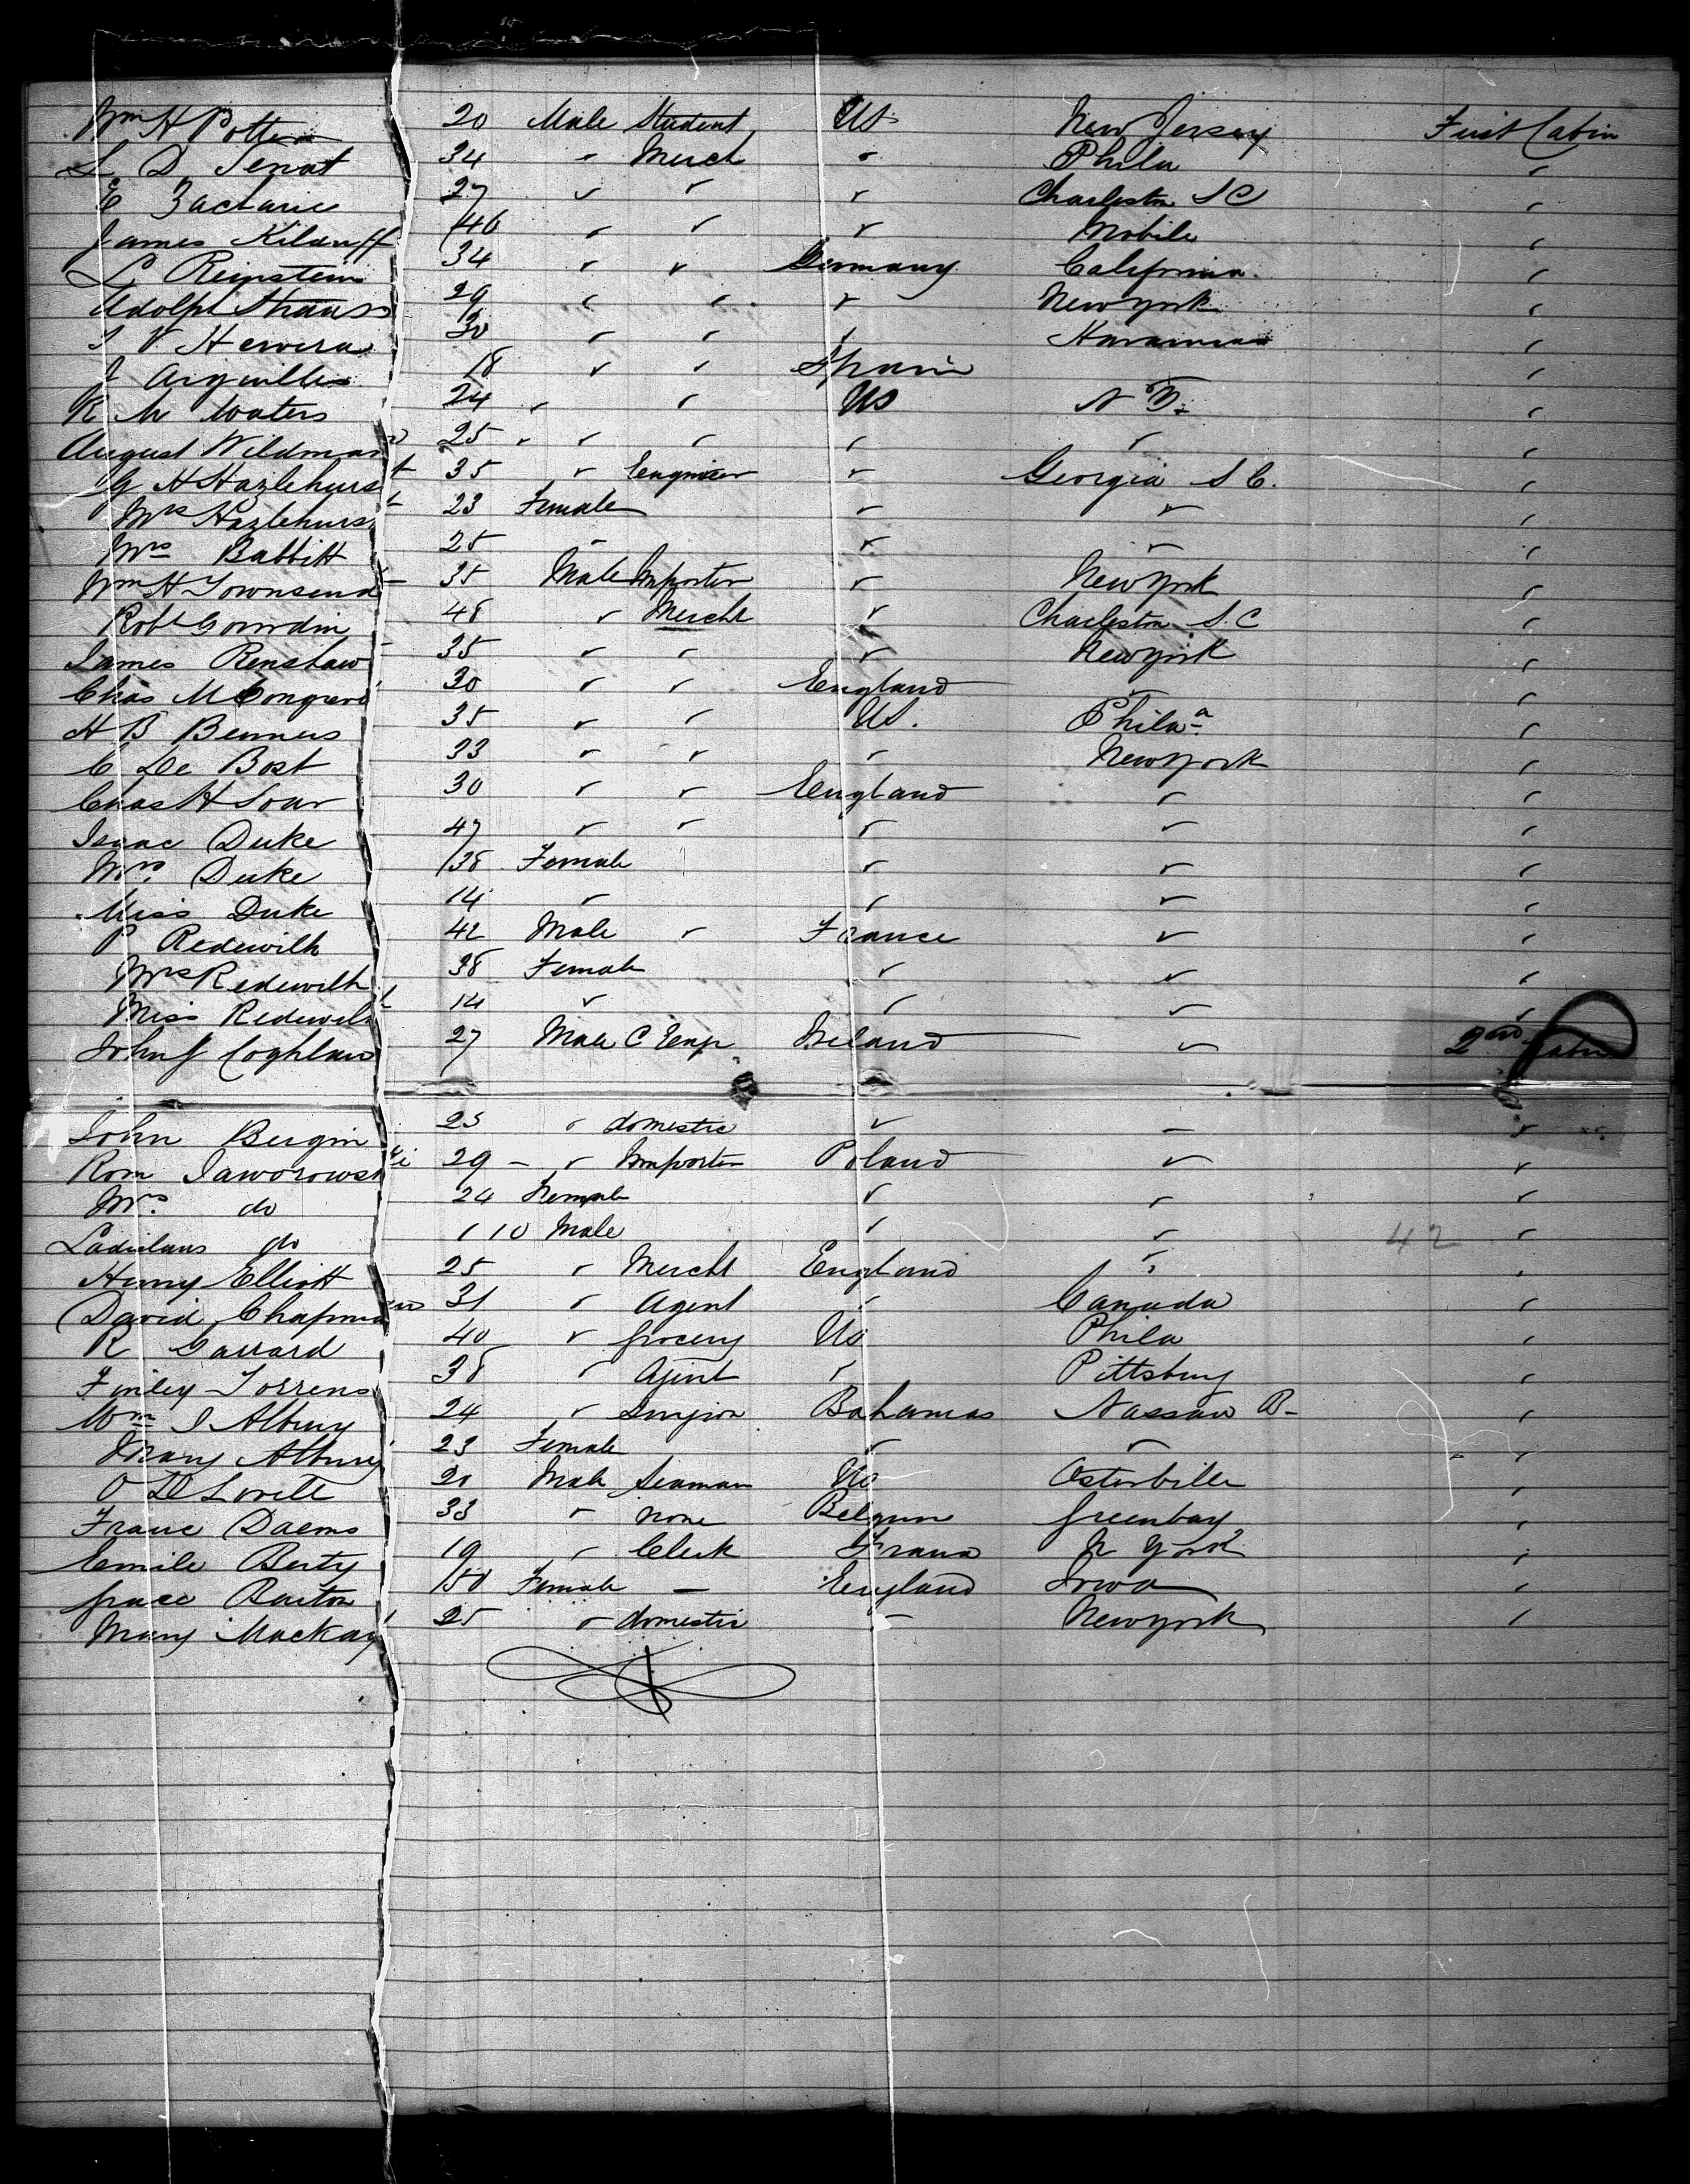 Wm H Potter 20 Male Student US New Jersey First Cabin
L D Senat 34 " Merch " Phila "
E Zacharie 27 " " " Charleston S C "
James Kilduff 46 " " " Mobile "
L Reinstein 34 " " Germany California "
Adolph Strauss 29 " " " New York "
V Herrera 30 " " " "
J Arguilles 18 " " Spain "
R M Waters 24 " " US N Y. "
August Wildman 25 " " " " "
G H Hazlehurst 35 " Engineer " Georgia S C. "
Mrs Hazlehurst 23 Female " " "
Mrs Babbitt 25 " " " "
Wm H Townsend 35 Male Importer " New York "
Robt Gourdin 48 " Mercht " Charleston S.C "
James Renshaw 35 " " " New York "
Chas M Congreve 30 " " England " "
H B Benners 35 " " US. Phila "
C De Bost 33 " " " New York "
Chas H 30 " " England " "
Isaac Duke 47 " " " " "
Mrs. Duke 38 Female " " "
Miss Duke 14 " " " "
P Redewilh 42 Male " France " "
Mrs Redewilh 38 Female " " "
Miss Redewilh 14 " " " "
John J Coghlan 27 Male C Engr Ireland " 2nd Cabin
John Bergin 23 " domestic " " "
Rom Jaworowski 29 - " Importer Poland " "
Mrs. do 24 Female " " "
Ladislaus do 10 Male " " 42 "
Henry Elliott 25 " Mercht England " "
David Chapman 31 " Agent " Canada "
R Garrard 40 " grocery US Phila "
Finley Torrens 38 " Agent " Pittsburg "
Wm J Albury 24 " Surgeon Bahamas Nassau B- "
Mary Albury 23 Female " " "
O D Lovell Male Seaman US Osterville "
Franc Daems 33 " none Belgium Greenbay "
Emile Berty 19 " Clerk France N York "
Grace Barton 50 Female - England Iowa "
Mary Mackay 25 " domestic " New York "